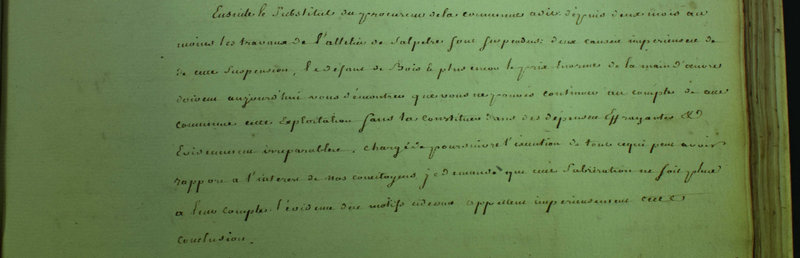 Ensuite le Substitut du procureur de la commune a dit, depuis deux mois au
moins les travaux de l'attelier de Salpetre sont suspendus: deux causes imperieuses de
de cette suspension, le defaut de Bois le plus encore le prix Enorme de la main d'œuvre
doivent aujourd'hui vous démontrer que vous ne pouvés continuer au compte de
commune cette Exploitation sans la constituer dans des dépenses Effrayantes &
Evidemment irreparables. chargé de poursuivre l'execution de tout ce qui peut avoir
rapport a l'interet de nos concitoyens, je demande que cette fabrication ne soit plus
a leur compte. l'évidence des motifs cidevus appellent imperieusement cette
conclusion.